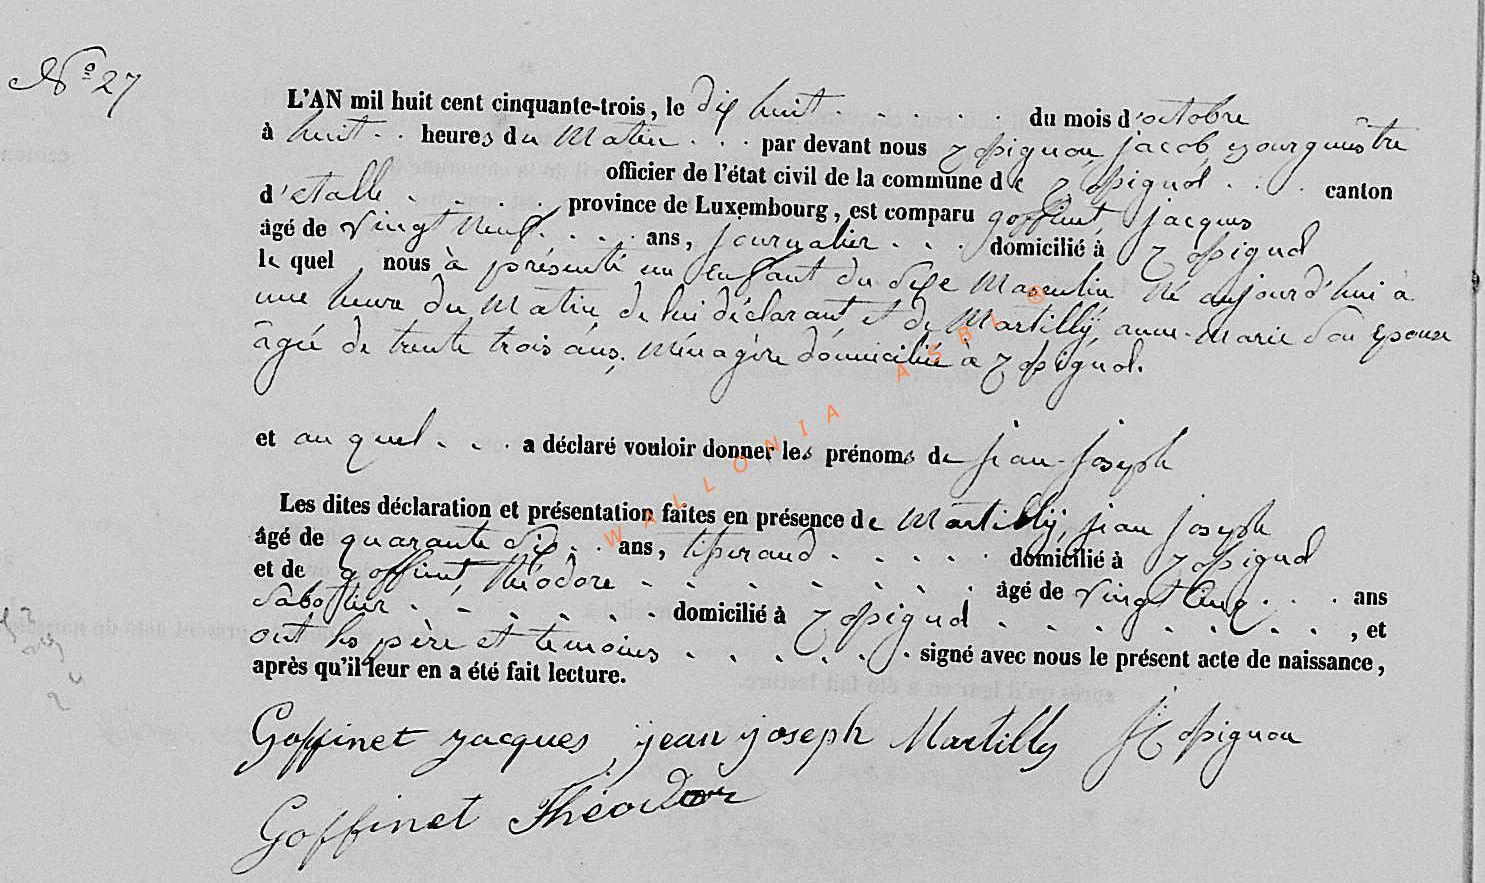 N° 27
L'AN mil huit cent cinquante-trois, le dix huit . . . . . du mois d'octobre
à huit . . heures du matin . . . par devant nous jacob bourgumêtre
officier de l'état civil de la commune de . . . canton
d'etalle . . . . . province de Luxembourg, est comparu goffinet, jacques
âgé de vingt neuf . . . . ans, journalier . . . domicilié à
le quel nous à présenté un enfant du sexe masculin né aujourd'hui à
une heure du matin de lui déclarant et de Martilly, anne-marie son epouse
âgée de trente trois ans, ménagère domicilié à
et au quel . . . a déclaré vouloir donner les prénoms de jean-joseph
Les dites déclaration et présentation faites en présence de Martilly, jean joseph
âgé de quarante six . . ans, tisserand . . . . . domicilié à
et de goffinet, théodore . . . . . . . . âgé de vingt cinq . . . ans
sabotier . . . . . . domicilié à . . . . . . . . , et
ont les père et temoins . . . . . . signé avec nous le présent acte de naissance,
après qu'il leur en a été fait lecture.
Goffinet jacques jean joseph Martilly
Goffinet Théodor
WALLONIA ASBL ®